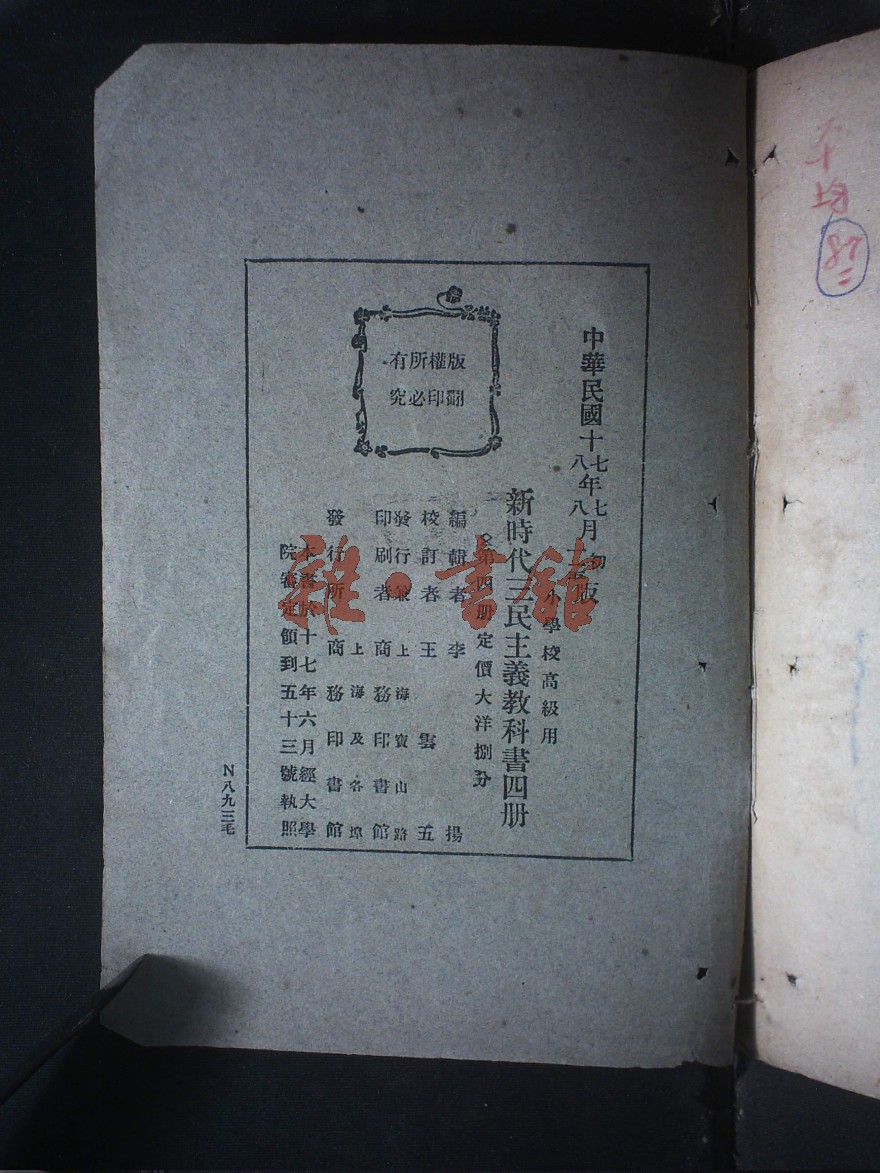 中華民國十七八年七八月初版
小學校高級用
新時代三民主義教科書四册
第四册定價大洋捌分
版權所有
翻印必究
編輯者 李 揚
校訂者 王雲五
發行兼印刷者 上海寶山路 商務印書館
發行所 上海及各埠 商務印書館
本書於十七年六月經大學
院審定領到五十三號執照
N八九三毛
雜·書館
平均
87